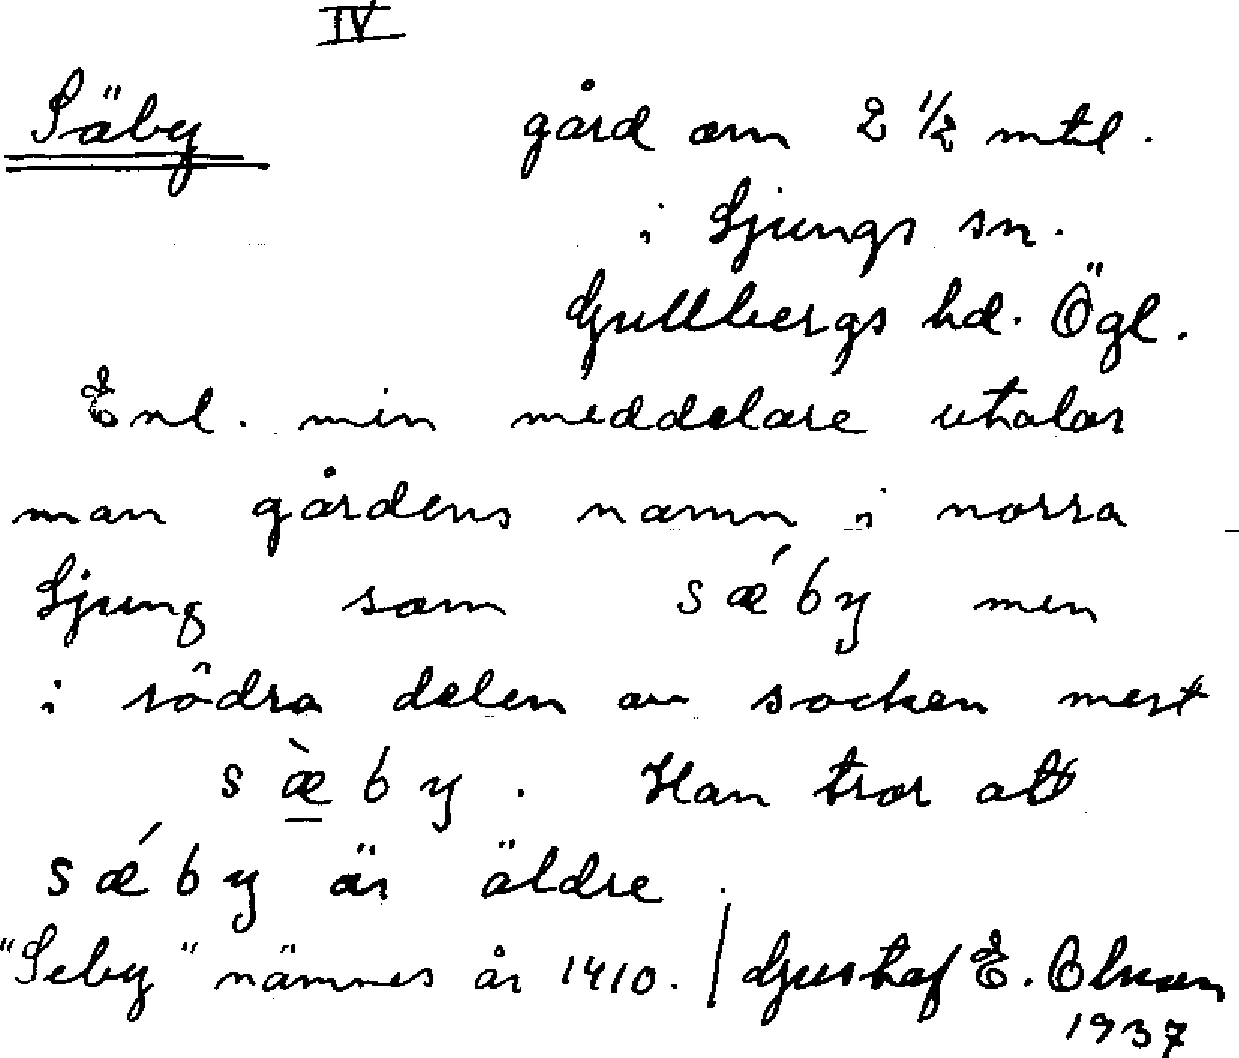 IV
Säby gård om 2 1/2 mtl.
i Ljungs sn.
Gullbergs hd. Ögl.
Enl. min meddelare uttalar
man gårdens namn i norra
Ljung som sǽby men
i södra delen av socken mest
sæ̀by. Han tror att
sǽby är äldre
"Seby" nämnes år 1410. / Gustaf E. Olsson
1937